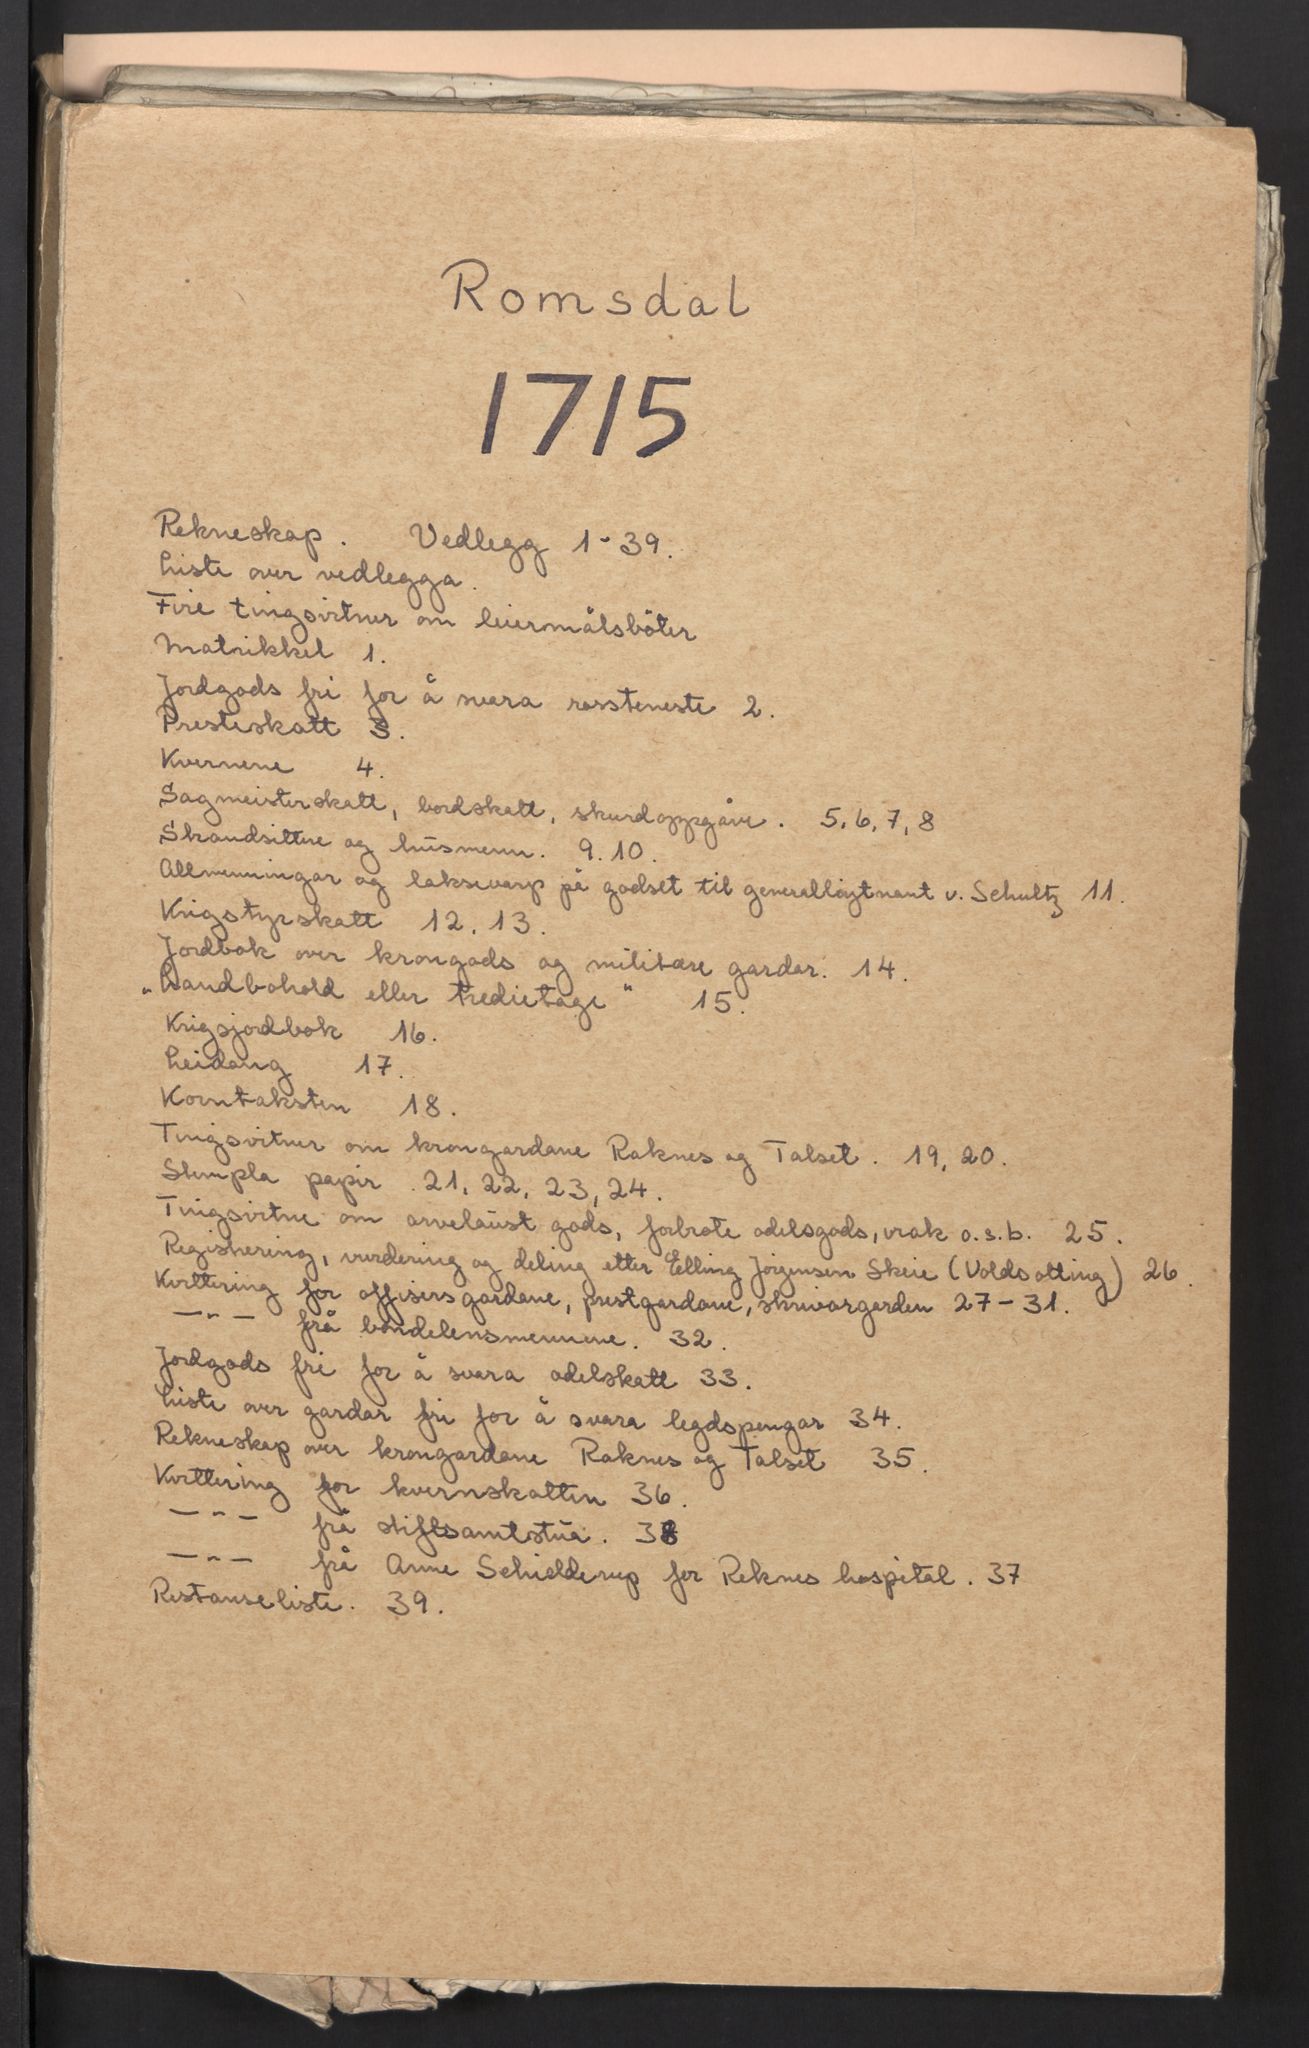 Romsdal
1715
Rekneskap. Vedlegg 1-39.
Liste over vedlegga.
Fire tingsvitner om leiermålsbøter
Matrikkel 1.
Jordgods fri for å svara rossteneste 2.
Presteskatt 3.
Kvernene 4.
Sagmeisterskatt, bordskatt, skurdoppgåve. 5, 6, 7, 8
Strandsittre og husmenn. 9. 10.
Allmenningar og laksevarp på godset til generalløytnant v. Schultz 11.
Krigstyrskatt 12, 13.
Jordbok over krongods og militære gardar. 14.
"Landbohold eller tredietage" 15.
Krigsjordbok 16.
Leidang 17.
Korntaksten 18.
Tingsvitner om krongardane Raknes og Talset. 19, 20.
Stempla papir. 21, 22, 23, 24.
Tingsvitne om arvelaust gods, forbrote odelsgods, vrak o.s.b. 25.
Registrering, vurdering og deling etter Elling Jørgensen Skeie (Voldsotting) 26.
Kvittering for offisersgardane, prestgardane, skrivargarden 27-31.
—"— frå bondelensmennene. 32.
Jordgods fri for å svara odelskatt 33.
Liste over gardar fri for å svara legdspengar 34.
Rekneskap over krongardane Raknes og Talset 35.
Kvittering for kvernskatten 36.
—"— frå stiftsamtstua. 38
—"— frå Anne Schielderup for Reknes hospital. 37
Restanseliste. 39.